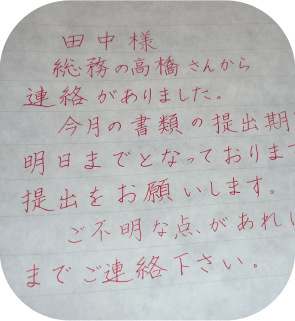 田中様
総務の高橋さんから
連絡がありました。
今月の書類の提出期
明日までとなっております
提出をお願いします。
ご不明な点があれ
までご連絡下さい。